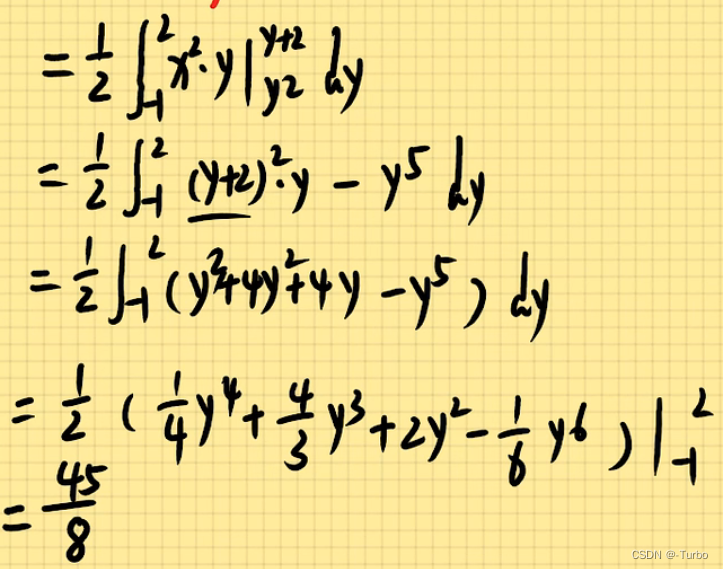 = 1/2 ∫_{-1}^{2} x²·y |_{y2}^{y+2} dy
= 1/2 ∫_{-1}^{2} (y+2)²·y − y⁵ dy
= 1/2 ∫_{-1}^{2} (y²+4y²+4y −y⁵) dy
= 1/2 ( 1/4 y⁴ + 4/3 y³ + 2y² − 1/6 y⁶ ) |_{-1}^{2}
= 45/8
CSDN @-Turbo